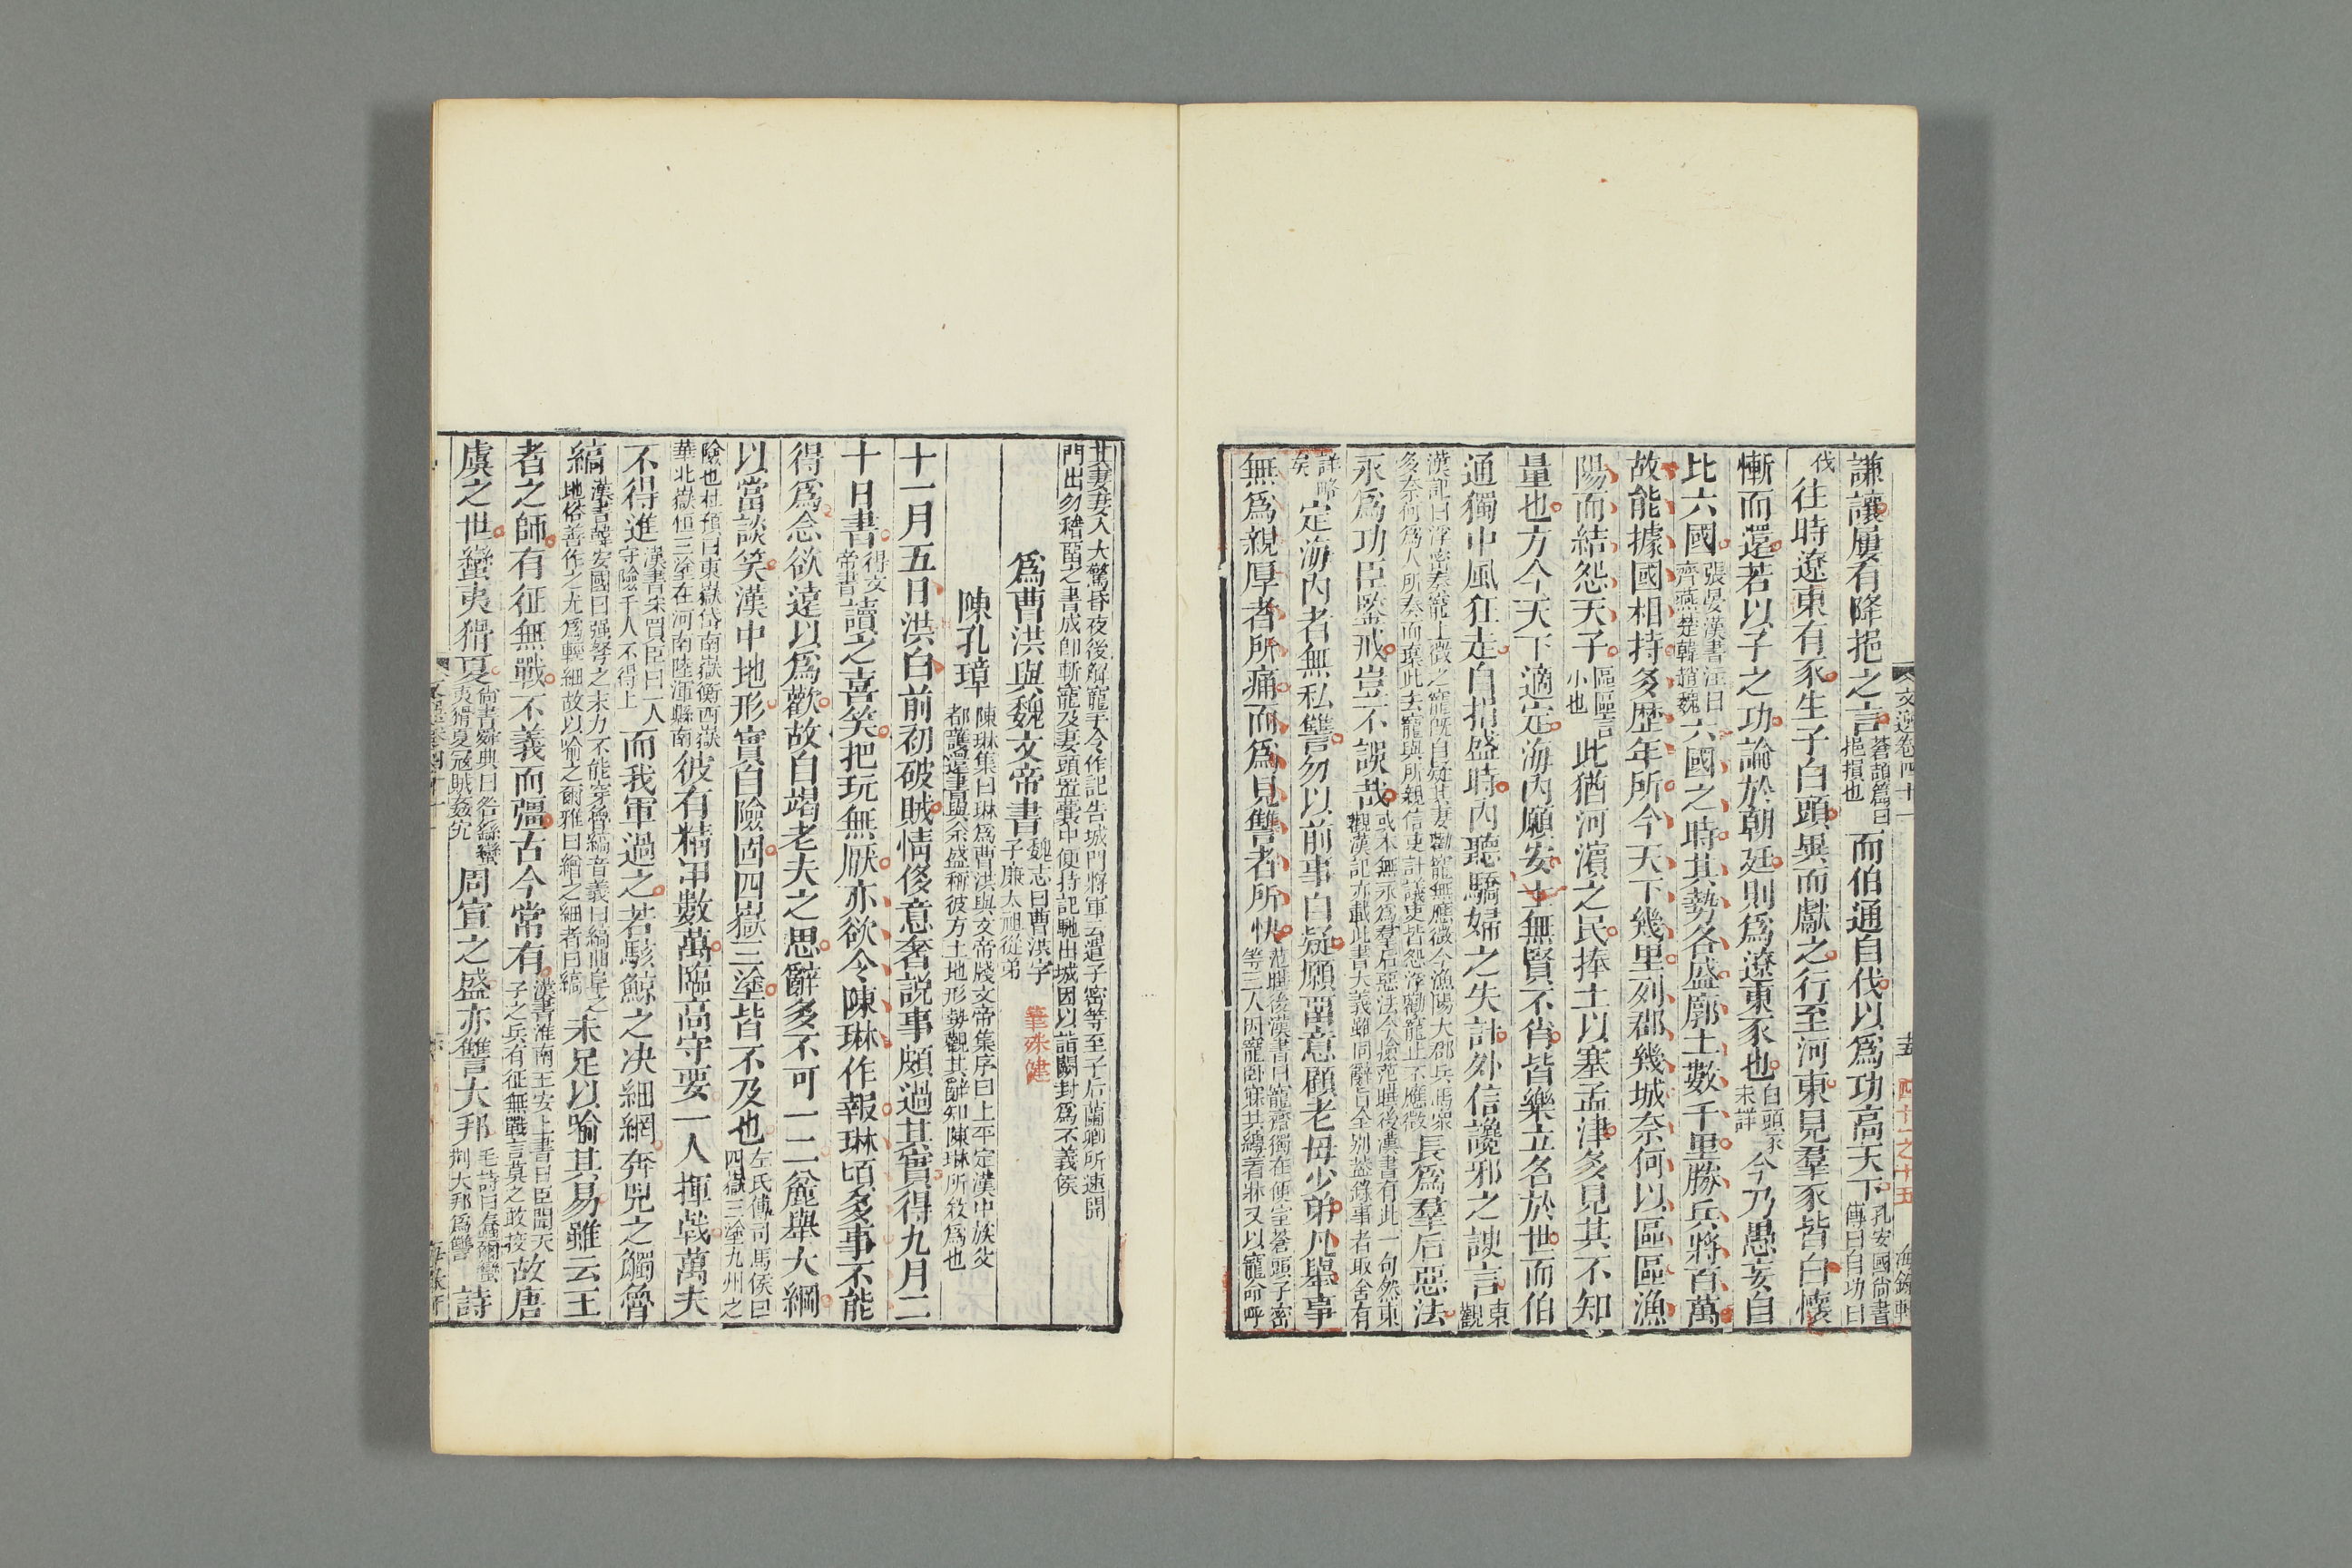 文選卷四十一 十五 四十一之十五 海錄軒
謙讓屢有降挹之言蒼頡篇曰挹損也而伯通自伐以爲功高天下孔安國尙書傳曰自功曰
伐往時遼東有豕生子白頭異而獻之行至河東見羣豕皆白懷
慚而還若以子之功論於朝廷則爲遼東豕也白頭豕未詳今乃愚妄自
比六國張晏漢書注曰齊燕楚韓趙魏六國之時其勢各盛廓土數千里勝兵將百萬
故能據國相持多歷年所今天下幾里列郡幾城奈何以區區漁
陽而結怨天子區區言小也此猶河濱之民捧土以塞孟津多見其不知
量也方今天下適定海內願安士無賢不肖皆樂立名於世而伯
通獨中風狂走自捐盛時內聽驕婦之失計外信讒邪之諛言東觀
漢記曰浮密奏寵上徵之寵旣自疑其妻勸寵無應徵今漁陽大郡兵馬衆多奈何爲人所奏而棄此去寵與所親信吏計議吏皆怨浮勸寵止不應徵長爲羣后惡法
永爲功臣鑒戒豈不誤哉或本無永爲羣后惡法今撿范曄後漢書有此一句然東觀漢記亦載此書大義雖同辭旨全別蓋錄事者取舍有
詳略矣定海內者無私讐勿以前事自疑願畱意顧老母少弟凡舉事
無爲親厚者所痛而爲見讐者所快范曄後漢書曰寵齋獨在便室蒼頭子密等三人因寵臥寐共縛著牀又以寵命呼
其妻妻入大驚昏夜後解寵手令作記告城門將軍云遣子密等至子后蘭卿所速開門出勿稽畱之書成即斬寵及妻頭置囊中便持記馳出城因以詣闕封爲不義侯
爲曹洪與魏文帝書魏志曰曹洪字子廉太祖從弟 筆殊健
陳孔璋陳琳集曰琳爲曹洪與文帝牋文帝集序曰上平定漢中族父都護還書與余盛稱彼方土地形勢觀其辭知陳琳所敘爲也
十一月五日洪白前初破賊情奓意奢說事頗過其實得九月二
十日書得文帝書讀之喜笑把玩無厭亦欲令陳琳作報琳頃多事不能
得爲念欲遠以爲歡故自竭老夫之思辭多不可一二麄舉大綱
以當談笑漢中地形實自險固四嶽三塗皆不及也左氏傳司馬侯曰四嶽三塗九州之
險也杜預曰東嶽岱南嶽衡西嶽華北嶽恒三塗在河南陸渾縣南彼有精甲數萬臨高守要一人揮戟萬夫
不得進漢書朱買臣曰一人守險千人不得上而我軍過之若駭鯨之决細網奔兕之觸魯
縞漢書韓安國曰强弩之末力不能穿魯縞音義曰縞曲阜之地俗善作之尤爲輕細故以喻之爾雅曰繒之細者曰縞未足以喻其易雖云王
者之師有征無戰不義而彊古今常有漢書淮南王安上書曰臣聞天子之兵有征無戰言莫之敢校故唐
虞之世蠻夷猾夏尙書舜典曰咎繇蠻夷猾夏冦賊姦宄周宣之盛亦讐大邦毛詩曰蠢爾蠻荆大邦爲讐詩